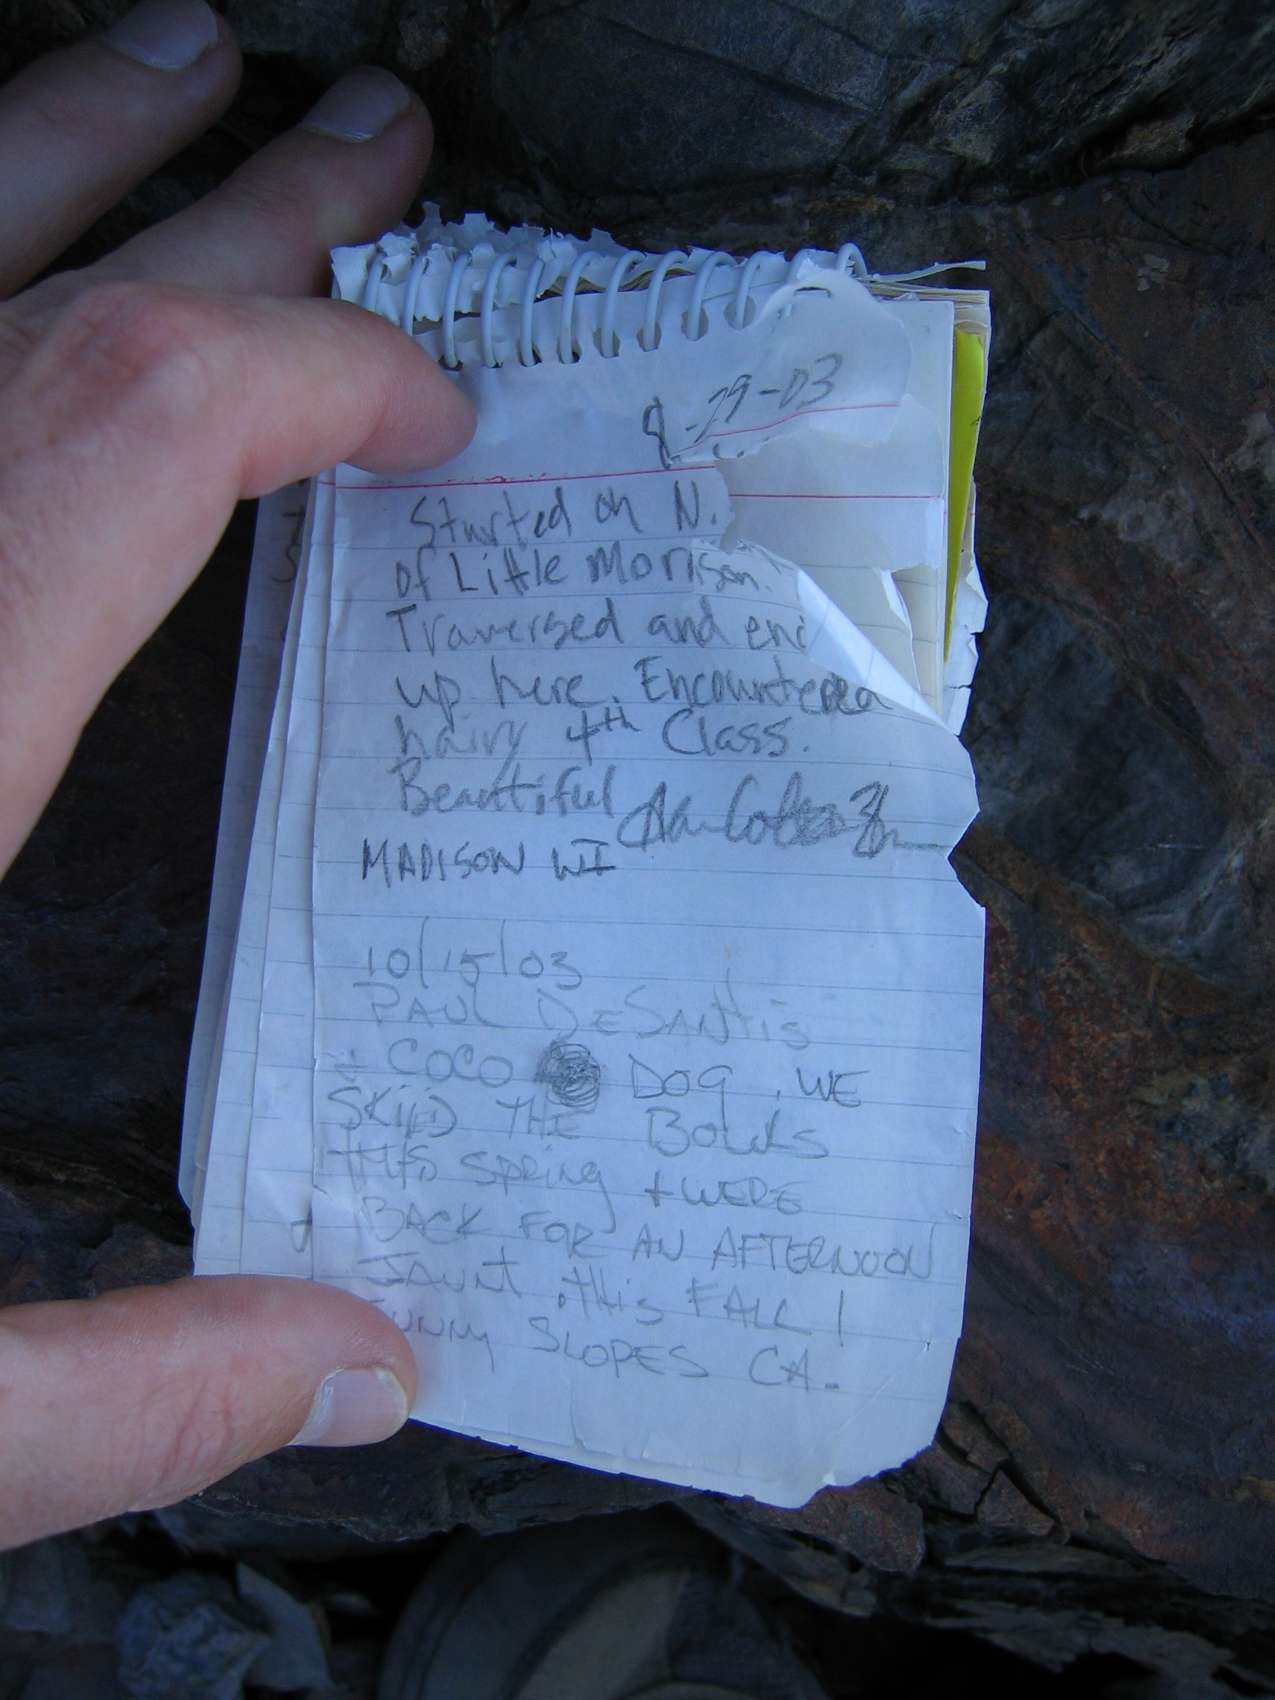 8-29-03
Started on N.
of Little Morrison.
Traversed and en
up here. Encountered
hairy 4th Class.
Beautiful
MADISON WI
10/15/03
PAUL DESANTIS
+ COCO DOG. WE
SKIID THE BOWLS
THIS SPRING + WERE
BACK FOR AN AFTERNOON
JAUNT this FALL!
SUNNY SLOPES CA.